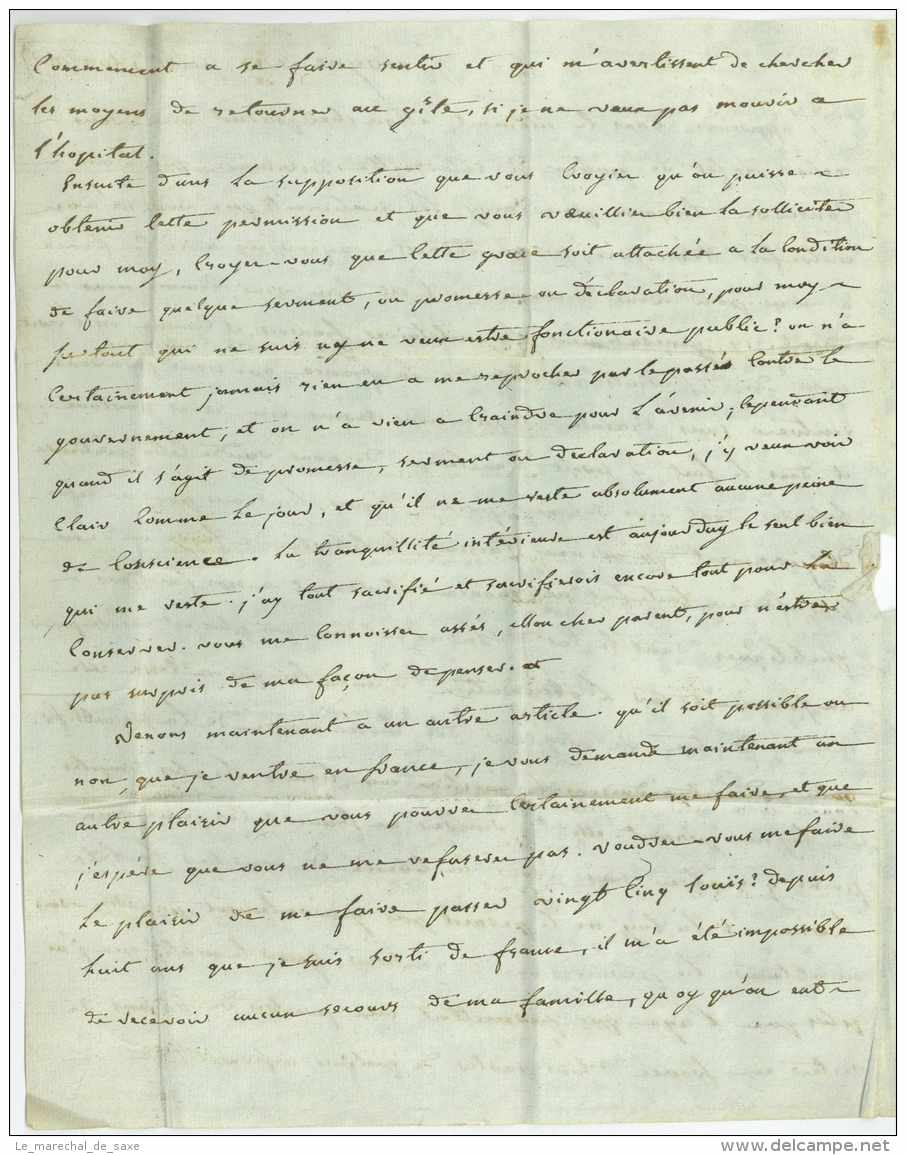 Commencent a se faire sentir et qui m'avertissent de chercher
les moyens de retourner au gîte, si je ne veux pas mourir a
l'hopital.
Ensuite dans la supposition que vous croyier qu'on puisse
obtenir cette permission et que vous vœuillier bien la solliciter
pour moy, croyer-vous que cette grace soit attachée a la condition
de faire quelque serment, ou promesse ou déclaration, pour moy
surtout qui ne suis ny ne veux estre fonctionaire public? on n'a
certainement jamais rien eu a me reprocher par le passé contre le
gouvernement, et on n'a rien a craindre pour l'avenir; cependant
quand il s'agit de promesse, serment ou déclaration, j'y veux voir
clair comme le jour, et qu'il ne me reste absolument aucune peine
de conscience. la tranquillité intérieure est aujourduy le seul bien
qui me reste. j'ay tout sacrifié et sacrifierois encore tout pour la
conserver. vous me connoisser assés, mon cher parent, pour n'estre
pas surpris de ma façon de penser.
Venons maintenant a un autre article. qu'il soit possible ou
non, que je rentre en france, je vous demande maintenant un
autre plaisir que vous pourrer certainement me faire, et que
j'espère que vous ne me refuserer pas. voudrer-vous me faire
le plaisir de me faire passer vingt cinq louis? depuis
huit ans que je suis sorti de france, il m'a été impossible
de recevoir aucun secours de ma famille, quoy qu'on eut
Le_marechal_de_saxe
www.delcampe.net